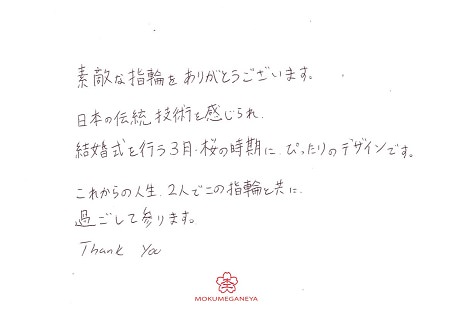 素敵な指輪をありがとうございます。
日本の伝統技術を感じられ、
結婚式を行う3月・桜の時期に、ぴったりのデザインです。
これからの人生、2人でこの指輪と共に、
過ごして参ります。
Thank You
MOKUMEGANEYA